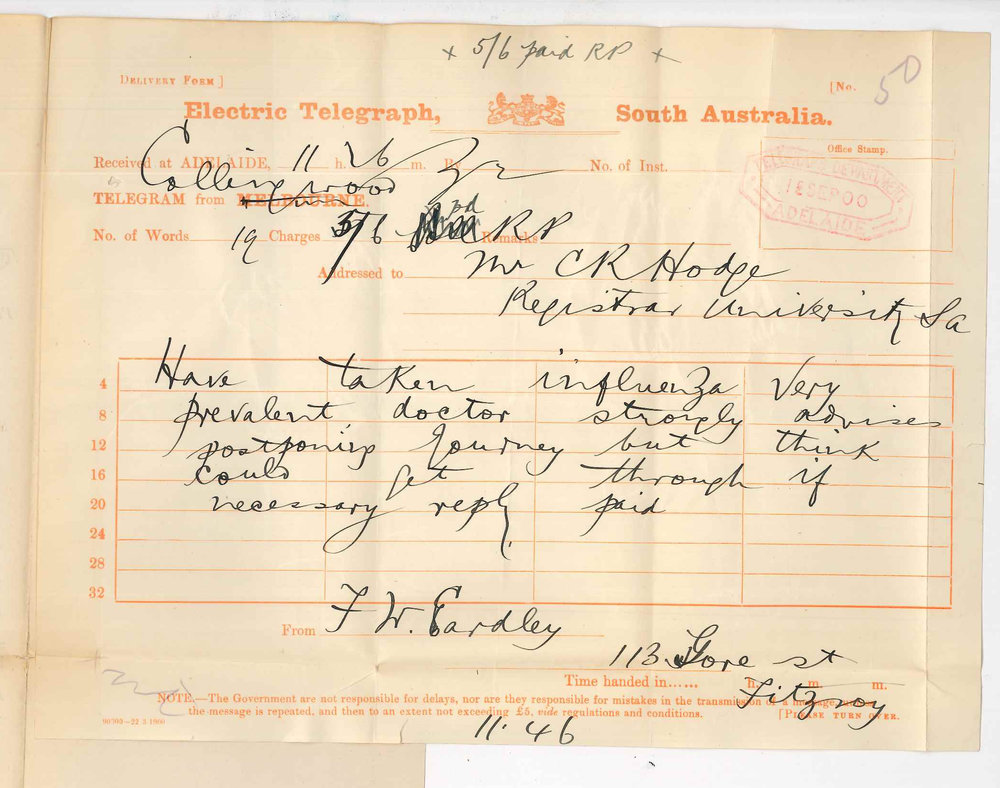 x 5/6 paid RP x
DELIVERY FORM ]
[No. 50
Electric Telegraph, South Australia.
Office Stamp.
Received at ADELAIDE, 11 h. 26 m. By No. of Inst.
Collingwood
TELEGRAM from MELBOURNE.
TELEGRAPH DEPARTMENT
18 SEP 00
ADELAIDE
No. of Words 19 Charges 5/6 Remarks RP
Addressed to Mr C R Hodge
Registrar University Sa
4 Have taken influenza very
8 prevalent doctor strongly advises
12 postponing journey but think
16 could get through if
20 necessary reply paid
24
28
32
From F W. Eardley
113 Gore st
Time handed in...... h. m. m.
Fitzroy
NOTE.—The Government are not responsible for delays, nor are they responsible for mistakes in the transmission of a message,
the message is repeated, and then to an extent not exceeding £5, vide regulations and conditions.
[PLEASE TURN OVER.
22 3 1900
11.46